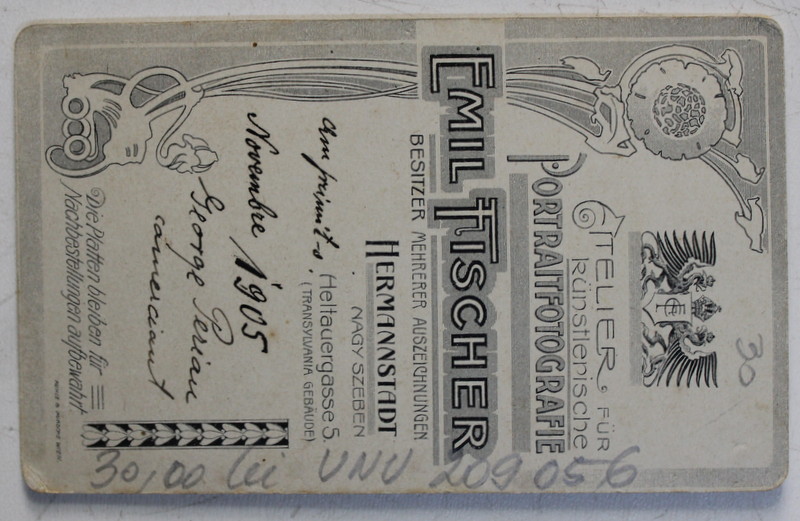 30
ATELIER FÜR
künstlerische
PORTRAITFOTOGRAFIE
EMIL FISCHER
BESITZER MEHRERER AUSZEICHNUNGEN
HERMANNSTADT
NAGY SZEBEN
Heltauergasse 5.
(TRANSYLVANIA GEBÄUDE)
am primit-o
Novembre 1905
George Perian
comerciant
Die Platten bleiben für
Nachbestellungen aufbewahrt.
30,00 lei UNU 209 056